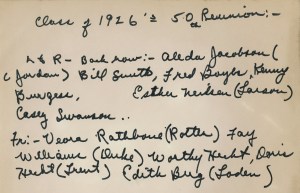 Class of 1926's 50th Reunion:-
L & R - Back row:- Aleda Jacobson (
(Jordan) Bill Smith, Fred Boyle, Henry
Burgess, Esther Neilsen (Larson)
Casey Swanson..
Fr:- Veora Rathbone (Rotter) Fay
Williams (Duke) Worthy Hecht, Doris
Hecht (Trent) Edith Berg (Loden)